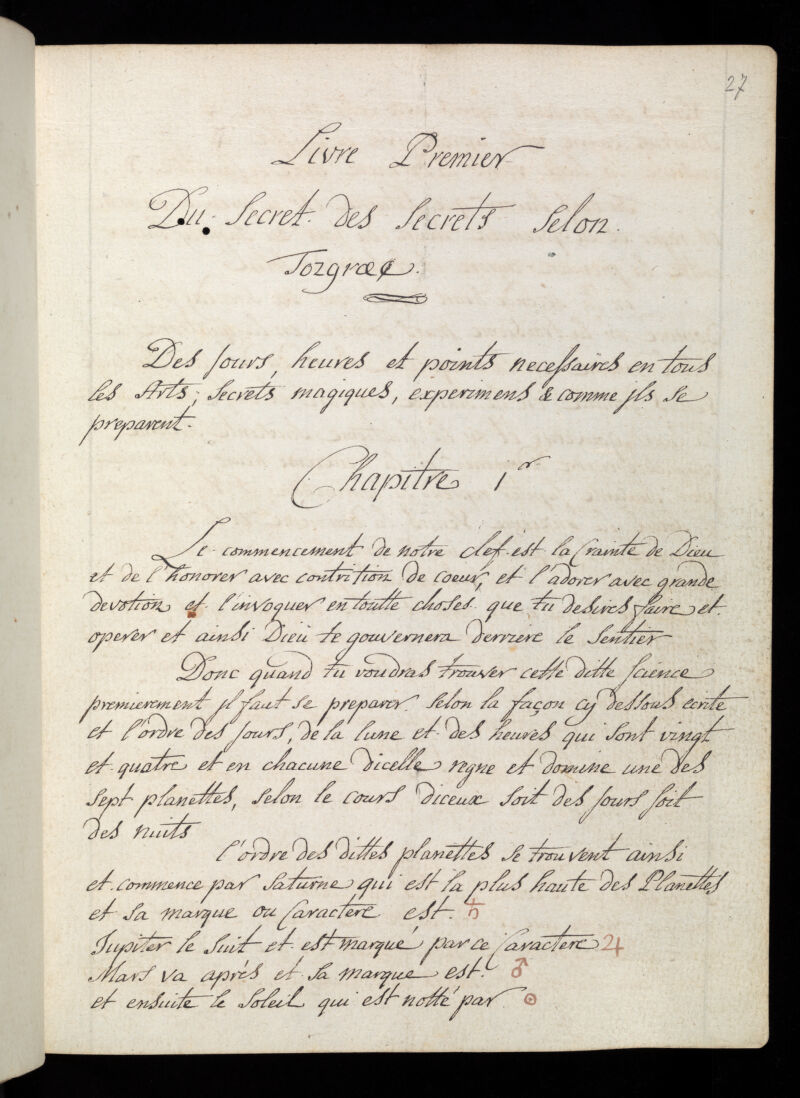 27
Livre Premier
Du Secret des Secrets Selon
Tozgræc.
Des Jours, heures et points necessaires en tous
les Arts, Secrets magiques, experimens & comme jls se
preparent.
Chapitre 1er
Le commencement de notre clef est la Crainte de Dieu
et de l'honorer avec contrition de coeur, et l'adorer avec grande
devotion et l'invoquer en toutte choses que tu desires faire et
operer et ainsi Dieu te gouvernera derriere le Sentier
Donc quand tu voudras trouver cette ditte Science
premierement jl faut se preparer selon la façon cy dessous ecrite
et l'ordre des Jours, de la lune et des heures qui sont vingt
et quatre et en chacune dicelle regne et domine une des
Sept planettes, selon le cours diceux soit des Jours soit
des nuits
l'ordre des dittes planettes se trouvent ainsi
et commence par Saturne qui est la plus haute des Planettes
et sa marque ou Caractere est. ♄
Jupiter le Suit et est marqué par ce Caractere ♃
Mars va aprés et Sa marque est. ♂
et ensuite le Soleil qui est notté par ☉